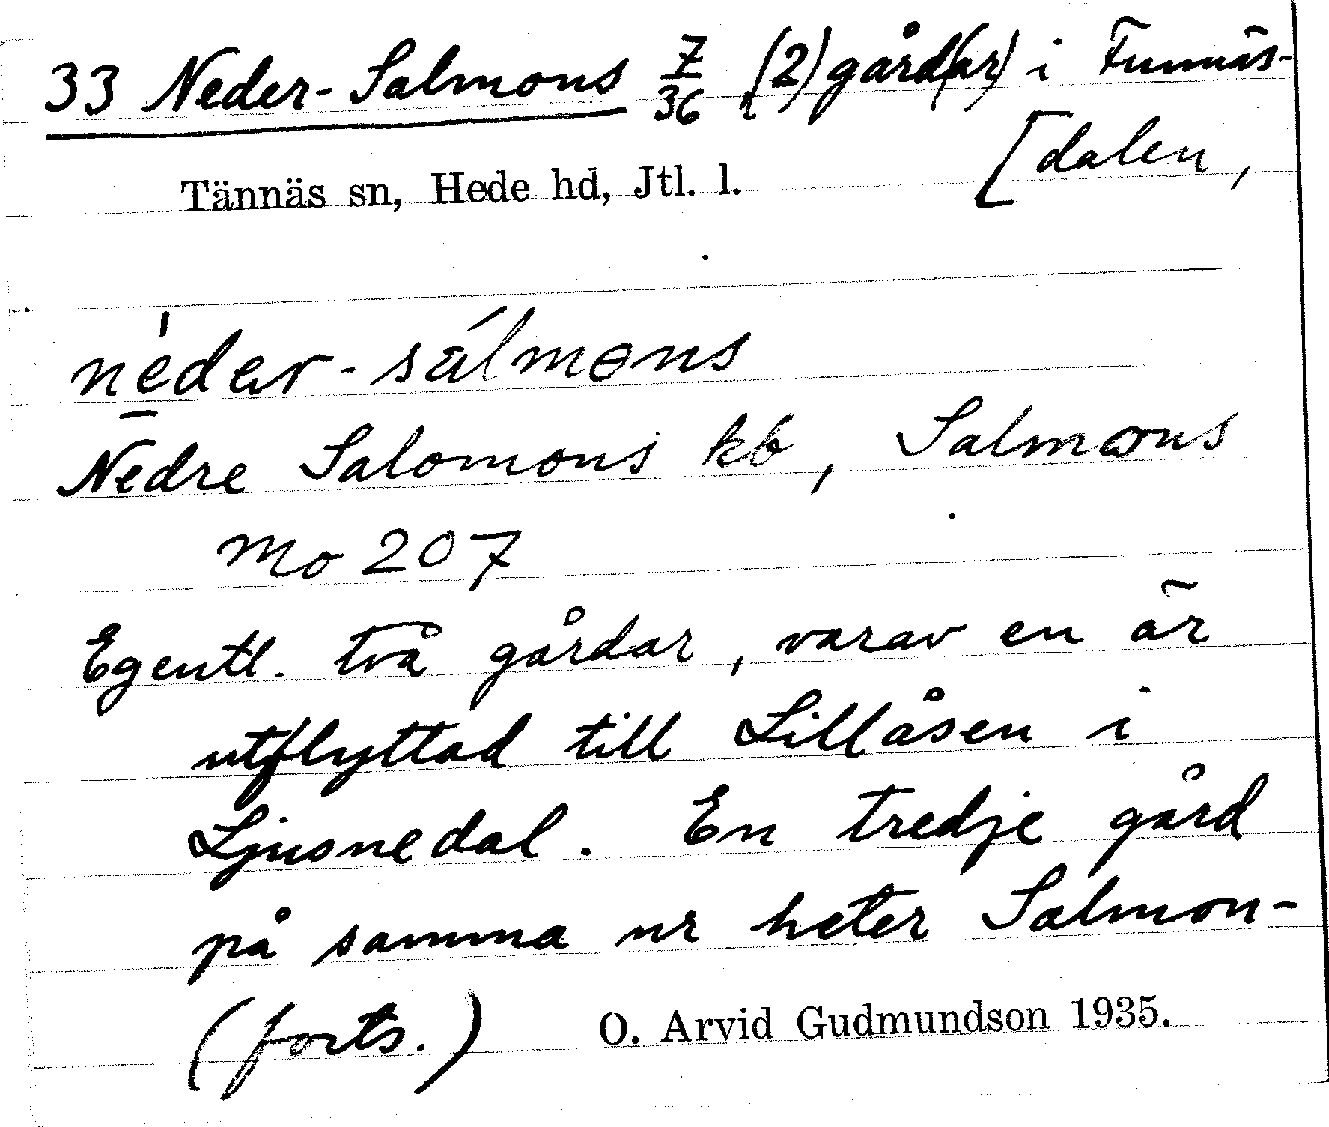 33 Neder-Salmons 7/36 (2) gård(ar) i Funnäs-
[dalen,
Tännäs sn, Hede hd, Jtl. l.
néder-sálmɵns
Nedre Salomons kb, Salmons
Mo 207
Egentl. två gårdar, varav en är
utflyttad till Lillåsen i
Ljusnedal. En tredje gård
på samma nr heter Salmon-
(forts.) O. Arvid Gudmundson 1935.